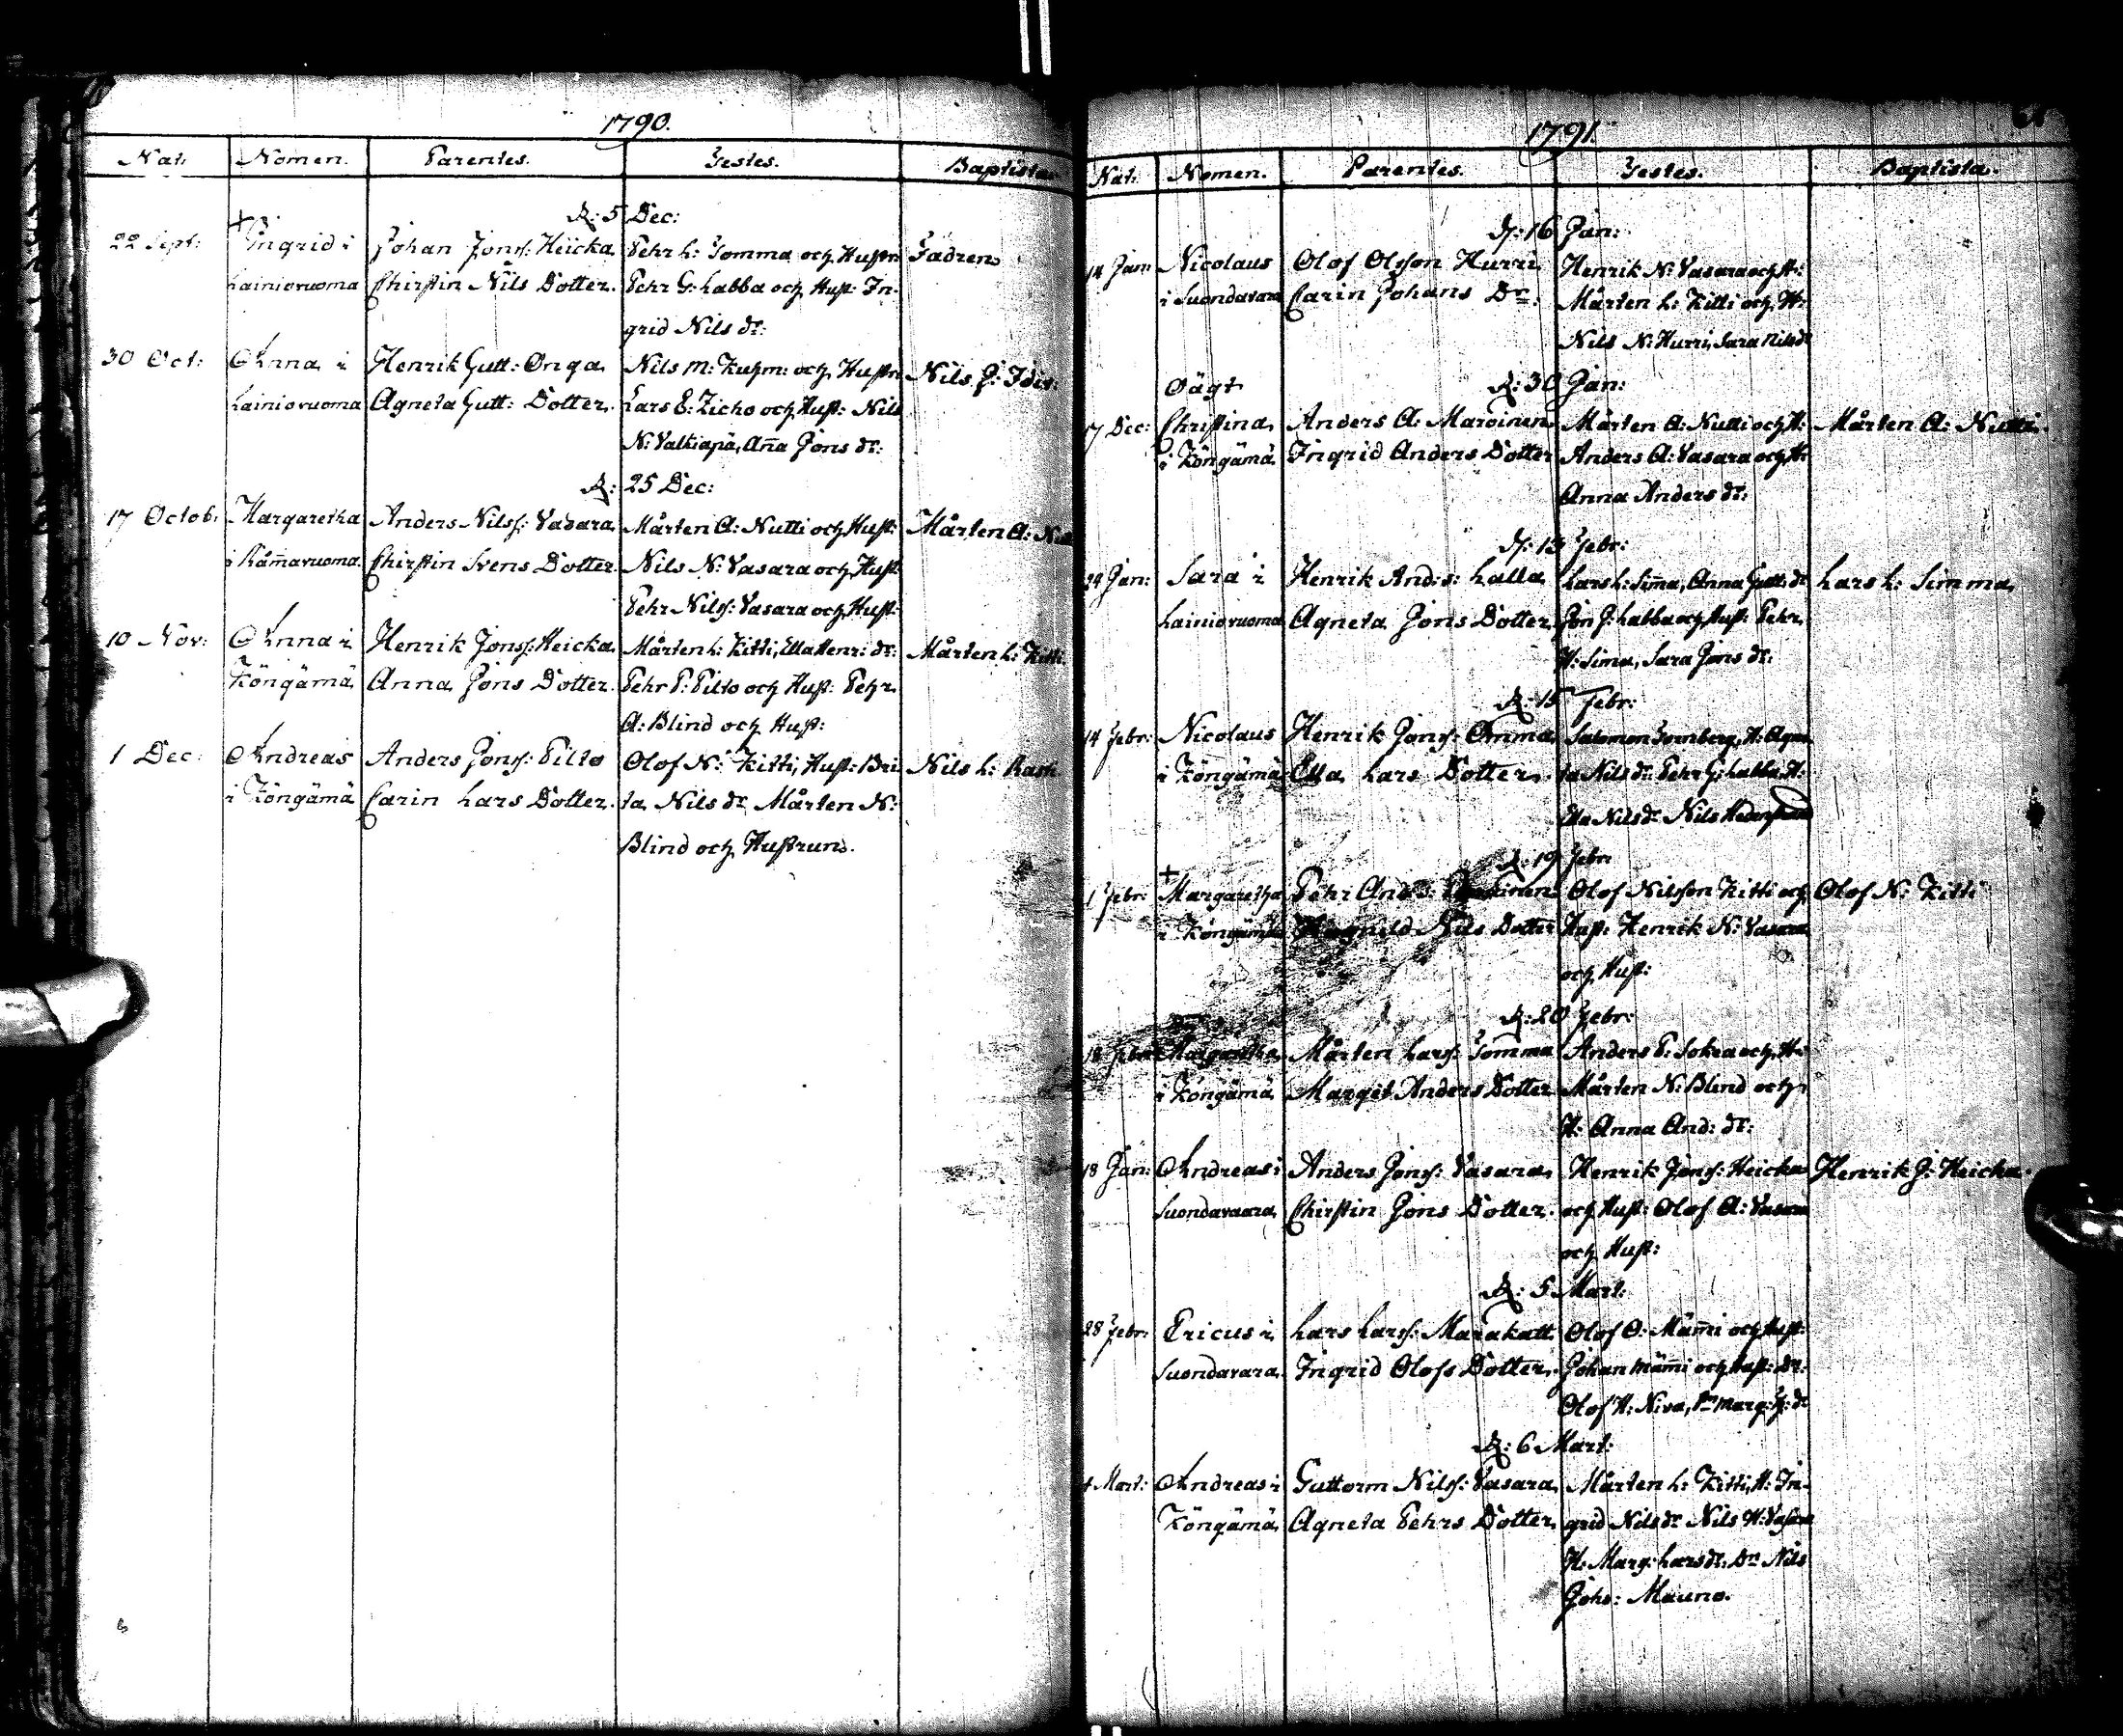 1790.
Nat: Nomen. Parentes. Testes. Baptista
R: 5 Dec:
22 Sept: + Ingrid i Johan Jonss: Heicka Pehr L: Tomma och Hustru Fadren
Lainiovuoma Chirstin Nils Dotter. Pehr G: Labba och Hust: In-
grid Nils dr:
30 Oct: Anna i Henrik Gutt: Onga Nils M: Kuhm: och Hustru Nils J: Idiv:
Lainiovuoma Agneta Gutt: Dotter. Lars E: Zicho och Hust: Nils
N: Valkiapä, Anna Jons dr:
R: 25 Dec:
17 Octob: Margaretha Anders Nilss: Vasara Mårten A: Nutti och Hust: Mårten A:
i Råmavuoma Chirstin Svens Dotter Nils N: Vasara och Hust:
Pehr Nilss: Vasara och Hust:
10 Nov: Anna i Henrik Jonss: Heicka Mårten L: Kitti, Ella Henr: dr: Mårten L: Kitti
Köngämä Anna Jons Dotter. Pehr P: Pilto och Hust: Pehr
A: Blind och Hust:
1 Dec: Andreas Anders Jonss: Pilto Olof N: Kitti, Hust: Bri Nils L: Rasti
i Köngämä Carin Lars Dotter. ta Nils dr Mårten N:
Blind och Hustrun.
1791.
Nat: Nomen. Parentes. Testes. Baptista.
R: 16 Jan:
14 Jan: Nicolaus Olof Olsson Hurri Henrik N: Vasara och H:
i Suondavara Carin Johans Dr: Mårten L: Kitti och H:
Nils N: Hurri, Sara Nils dr
Oägt R: 30 Jan:
17 Dec: Christina Anders A: Maroinen Mårten A: Nutti och H: Mårten A: Nutti.
i Köngämä Ingrid Anders Dotter Anders A: Vasara och H:
Anna Anders dr:
R: 13 Febr:
24 Jan: Sara i Henrik And: s: Lalla Lars L: Simma, Anna Gutt: dr Lars L: Simma
Lainiovuoma Agneta Jons Dotter. Jon J: Labba och Hust: Pehr
H: Sima, Sara Jons dr:
R: 15 Febr:
14 Febr: Nicolaus Henrik Jonss: Omma Salomon Tornberg, H: Agne
i Köngämä Ella Lars Dotter. ta Nils dr: Pehr G: Labba, H:
Ella Nils dr Nils
R: 19 Febr:
1 Febr: + Margaretha Pehr And: s: Olof Nilsson Kitti och Olof N: Kitti
i Köngämä Nils Dotter Hust: Henrik N: Vasara
och Hust:
R: 20 Febr:
18 Febr: Margaretha Mårten Larss: Tomma Anders P: Sokea och H:
i Köngämä Margit Anders Dotter Mårten N: Blind och
H: Anna And: dr:
18 Jan: Andreas i Anders Jonss: Vasara Henrik Jonss: Heicka Henrik J: Heicka.
Suondavaara Chirstin Jons Dotter. och Hust: Olof A: Vasara
och Hust:
R: 5 Mart:
28 Febr: Ericus i Lars Larss: Marakatt Olof O: Mämi och Hust:
Suondavara Ingrid Olofs Dotter. Johan Mämi och Hust: Dr:
Olof H: Niva, Marg: J: dr
R: 6 Mart:
4 Mart: Andreas i Guttorm Nilss: Vasara Mårten L: Kitti, H: In-
Köngämä Agneta Pehrs Dotter. grid Nils dr Nils H: Vasara
H: Marg: Lars dr. Dr: Nils
Johs: Mauno.